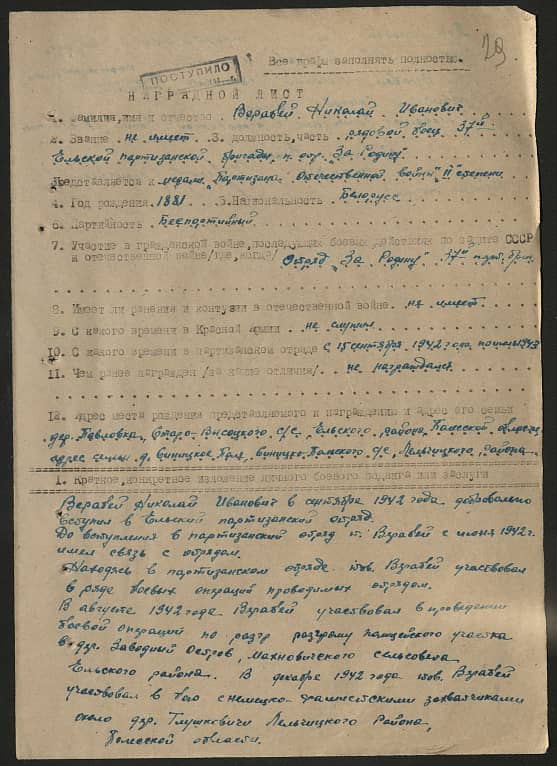 29
Все графы заполнять полностью.
ПОСТУПИЛО
НАГРАДНОЙ ЛИСТ
1. Фамилия, имя и отчество Верабей Николай Иванович
2. Звание не имеет. 3. Должность, часть рядовой боец 37й
Ельской партизанской бригады п. отр. За Родину"
Представляется к медали "Партизана Отечественной войны" II степени
4. Год рождения 1881 . . 5. Национальность Белорусс
6. Партийность Беспартийный
7. Участие в гражданской войне, последующих боевых действиях по защите СССР
и отечественной войне /где, когда/ Отряд "За Родину" 37й парт. бриг.
8. Имеет ли ранения и контузии в отечественной войне. не имеет.
9. С какого времени в Красной Армии . . не служил
10. С какого времени в партизанском отряде с 15 сентября 1942 года по
11. Чем ранее награжден /за какие отличия/. не награждался
12. Адрес места рождения представляемого к награждению и адрес его семьи
дер. Павловка, Старо-Высоцкого с/с Ельского района, Полесской области
адрес семьи д. Симоничско-Рудненского с/с Лельчицкого района
1. Краткое, конкретное изложение личного боевого подвига или заслуги
Верабей Николай Иванович в сентябре 1942 года добровольно
вступил в Ельский партизанский отряд.
До вступления в партизанский отряд т. Верабей с июня 1942 г.
имел связь с отрядом.
Находясь в партизанском отряде тов. Верабей участвовал
в ряде боевых операций проводимых отрядом.
В августе 1942 года Верабей участвовал в проведении
боевой операций по разгр разгрому полицейского участка
в дер. Заводный Остров, Махновичского сельсовета
Ельского района. В декабре 1942 года тов. Верабей
участвовал в бою с немецко-фашистскими захватчиками
около дер. Глушковичи Лельчицкого Района,
Полесской области.